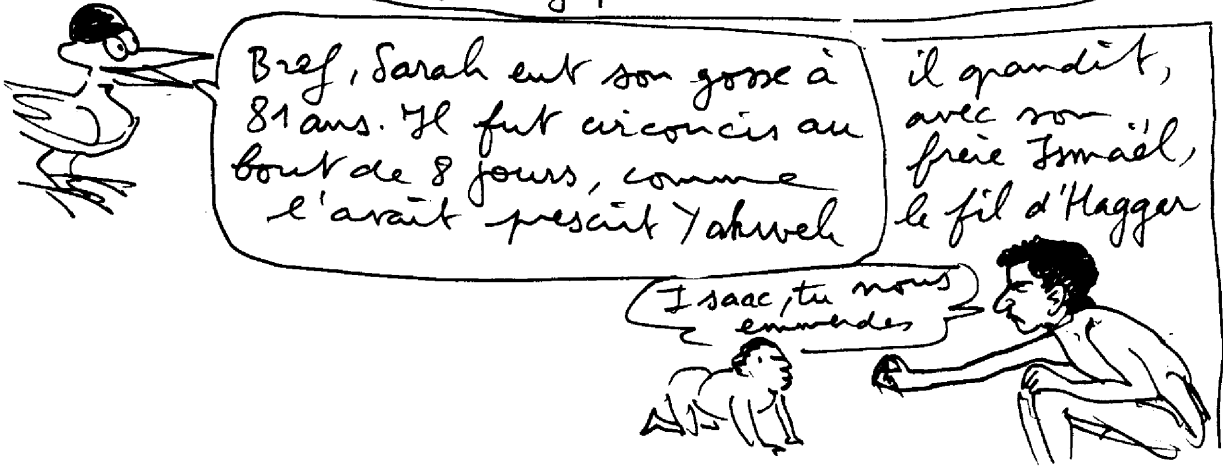 Bref, Sarah eut son gosse à
81 ans. Il fut circoncis au
bout de 8 jours, comme
l'avait prescrit Yahweh
il grandit,
avec son
frère Ismaël,
le fil d'Hagger
Isaac, tu nous
emmerdes